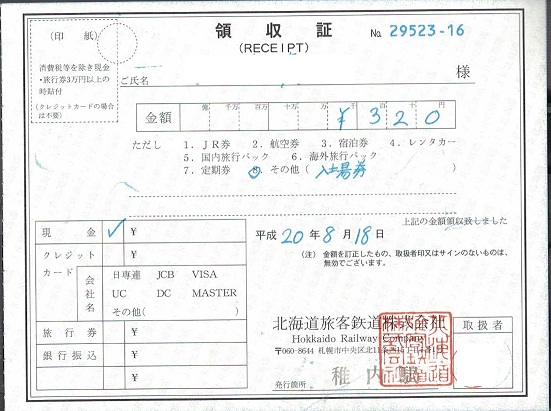 領収証
(RECEIPT)
No 29523-16
(印 紙)
消費税等を除き現金
・旅行券3万円以上の
時貼付
(クレジットカードの場合
は不要)
ご氏名
様
金額 億 千万 百万 十万 万 千 百 十 円
¥320
ただし 1. JR券 2. 航空券 3. 宿泊券 4. レンタカー
5. 国内旅行パック 6. 海外旅行パック
7. 定期券 8. その他( 入場券 )
上記の金額領収致しました
平成 20年 8月 18日
(注) 金額を訂正したもの、取扱者印又はサインのないものは、
無効でございます。
現金 ✓ ¥
クレジットカード ¥
会社名 日専連 JCB VISA
UC DC MASTER
その他( )
旅行券 ¥
銀行振込 ¥
¥
北海道旅客鉄道株式会社
Hokkaido Railway Company
〒060-8644 札幌市中央区北11条西15丁目1番1号
発行箇所 稚内駅
取扱者